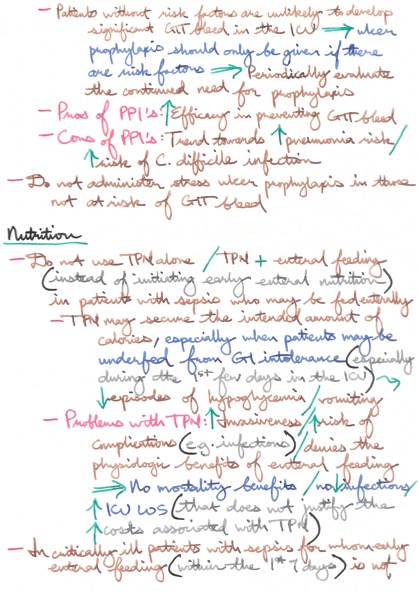 — Patients without risk factors are unlikely to develop
significant GIT bleed in the ICU ⟹ ulcer
prophylaxis should only be given if there
are risk factors ⟹ Periodically evaluate
the continued need for prophylaxis
— Pros of PPI's: ↑ Efficacy in preventing GIT bleed
— Cons of PPI's: Trend towards ↑ pneumonia risk /
↑ risk of C. difficile infection
— Do not administer stress ulcer prophylaxis in those
not at risk of GIT bleed
Nutrition
— Do not use TPN alone / TPN + enteral feeding
(instead of initiating early enteral nutrition)
in patients with sepsis who may be fed enterally
— TPN may secure the intended amount of
calories, especially when patients may be
underfed from GI intolerance (especially
during the 1st few days in the ICU) →
↓ episodes of hypoglycemia / vomiting
— Problems with TPN: ↑ Invasiveness / ↑ risk of
complications (e.g. infections) / denies the
physiologic benefits of enteral feeding
⟹ No mortality benefits / no ↓ infections /
↑ ICU LOS (that does not justify the
↑ costs associated with TPN)
— In critically ill patients with sepsis for whom early
enteral feeding (within the 1st 7 days) is not